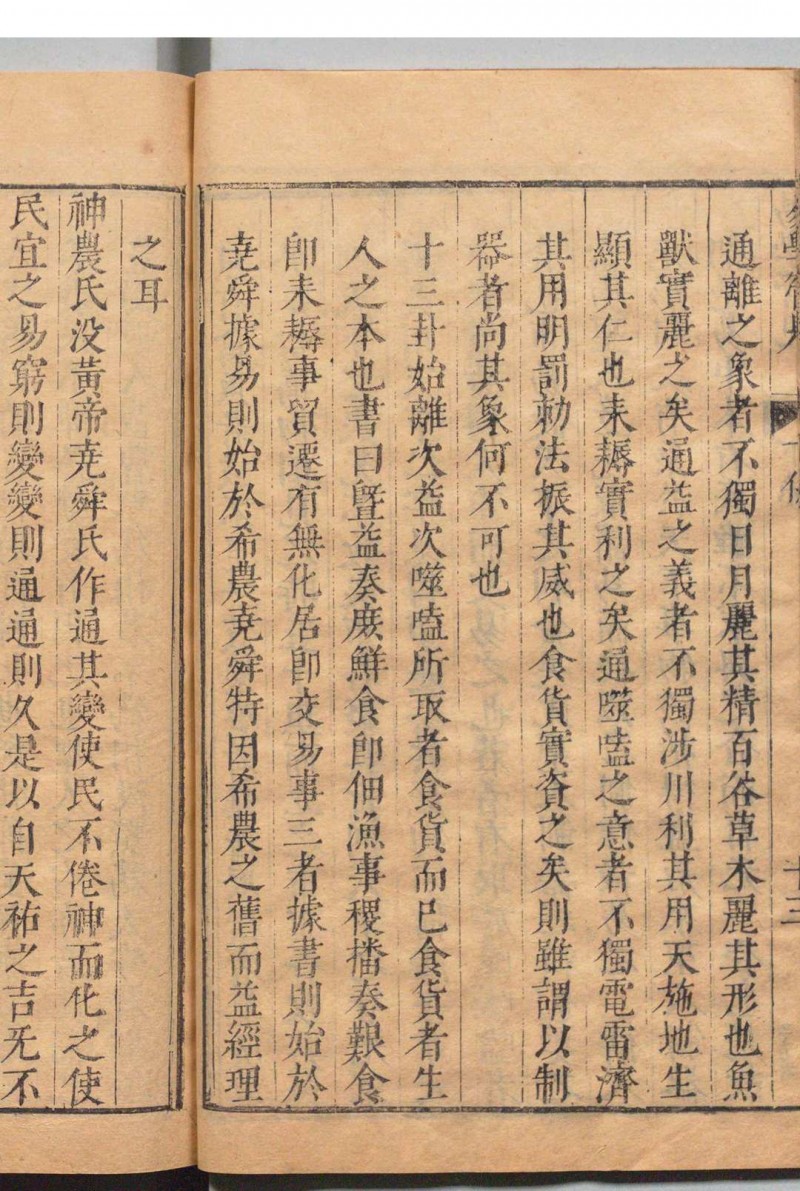 通離之象者不獨日月麗其精百谷草木麗其形也魚
獸實麗之矣通益之義者不獨涉川利其用天施地生
顯其仁也耒耨實利之矣通噬嗑之意者不獨電雷濟
其用明罰勅法振其威也食貨實資之矣則雖謂以制
器者尚其象何不可也
十三卦始離次益次噬嗑所取者食貨而已食貨者生
人之本也書曰暨益奏庶鮮食卽佃漁事稷播奏艱食
卽耒耨事貿遷有無化居卽交易事三者據書則始於
尭舜據易則始於希農尭舜特因希農之舊而益經理
之耳
神農氏没黃帝尭舜氏作通其變使民不倦神而化之使
民宜之易窮則變變則通通則久是以自天祐之吉无不